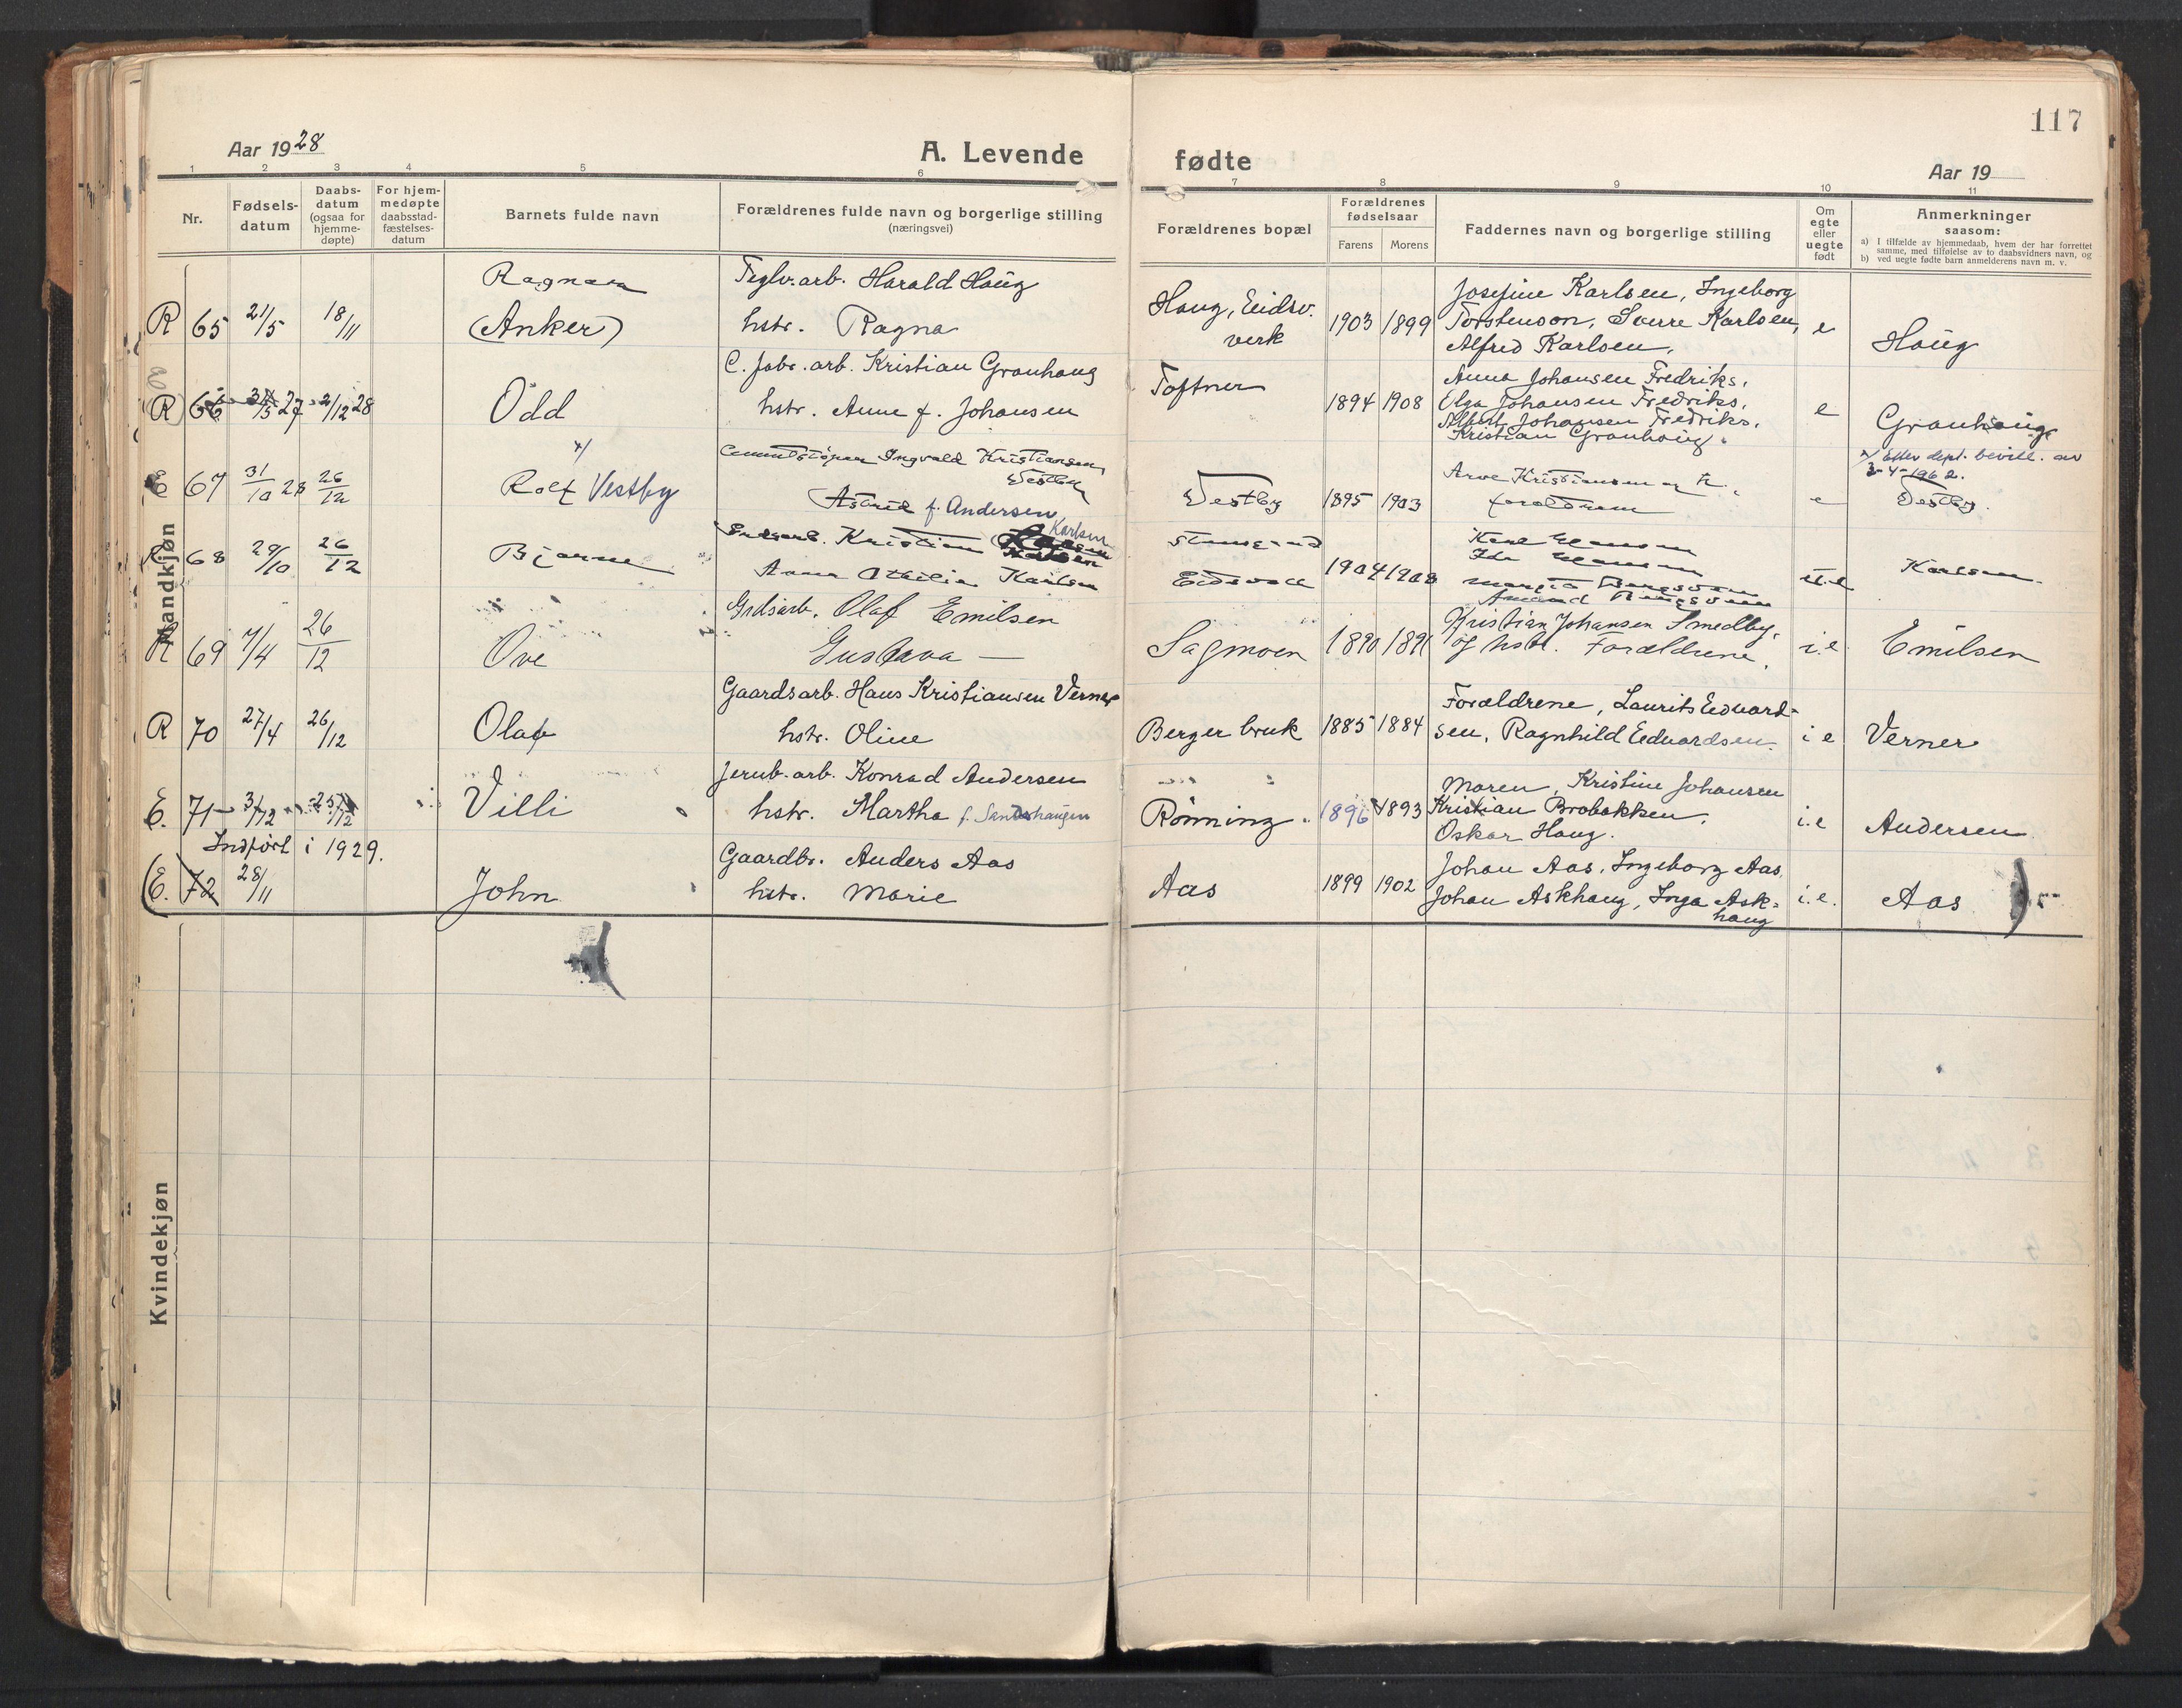 117
Aar 1928
A. Levende fødte
Aar 19
1 2 3 4 5 6 7 8 9 10 11
Nr.
Fødsels-
datum
Daabs-
datum
(ogsaa for
hjemme-
døpte)
For hjem-
medøpte
daabsstad-
fæstelses-
datum
Barnets fulde navn
Forældrenes fulde navn og borgerlige stilling
(næringsvei)
Forældrenes bopæl
Forældrenes
fødselsaar
Farens Morens
Faddernes navn og borgerlige stilling
Om
egte
eller
uegte
født
Anmerkninger
saasom:
a) I tilfælde av hjemmedaab, hvem der har forrettet
samme, med tilføielse av to daabsvidners navn, og
b) ved uegte fødte barn anmelderens navn m. v.
Mandkjøn
R 65 21/5 18/11
Ragnar
(Anker)
Teglv.arb. Harald Haug
hstr. Ragna
Haug, Eidsv.
verk
1903 1899
Josefine Karlsen, Ingeborg
Torstenson, Sverre Karlsen,
Alfred Karlsen.
e
Haug
(R) 66 27 2/12 28
Odd
C. fabr. arb. Kristian Granhaug
hstr. Anne f. Johansen
Toftner
1894 1908
Anna Johansen Fredriks.
Olga Johansen Fredriks.
Albert Johansen Fredriks.
Kristian Granhaug.
e
Granhaug
E 67 31/10 28 26/12
x/
Rolf Vestby
Cementstøper Ingvald Kristiansen
Vestby
Astrid f. Andersen
Vestby
1895 1903
Arve Kristiansen og
foreldrene
e
x/ Efter dept. bevill. av
3-4-1962.
Vestby.
R 68 29/10 26/12
Bjarne
Kristian Karlsen
Anna Othilie Karlsen
Eidsvoll
1904 1908
Karl Hansen
Ida Hansen
u.e
Karlsen
R 69 7/4 26/12
Ove
Grdsarb. Olaf Emilsen
Gustava —
Sagmoen
1890 1891
Kristian Johansen Smedby.
og hstr. Forældrene.
i.e
Emilsen
R 70 27/4 26/12
Olaf
Gaardsarb. Hans Kristiansen Verner
hstr. Oline
Berger bruk
1885 1884
Forældrene, Laurits Edvard-
sen, Ragnhild Edvardsen.
i e
Verner
E. 71 3/12 25/12
Villi
Jernb. arb. Konrad Andersen
hstr. Martha f. Sandshaugen
Rønning
1896 1893
Maren, Kristine Johansen
Kristian Brobakken,
Oskar Haug.
i.e
Andersen
Indført i 1929.
(E. 72 28/11
John
Gaardbr. Anders Aas
hstr. Marie
Aas
1899 1902
Johan Aas, Ingeborg Aas
Johan Askhaug, Inga Ask-
haug
i.e.
Aas
Kvindekjøn